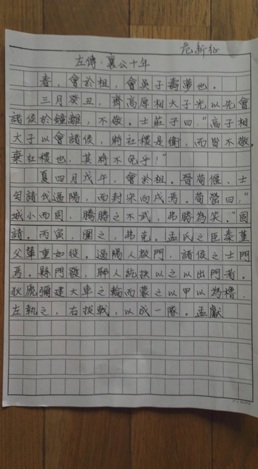 左傳·襄公十年
春，會於柤，會吳子壽夢也。
三月癸丑，齊高厚相大子光，以先會
諸侯於鍾離，不敬。士莊子曰：“高子相
大子以會諸侯，將社稷是衛，而皆不敬，
棄社稷也，其將不免乎！”
夏四月戊午，會於柤。晉荀偃、士
匄請伐逼陽，而封宋向戌焉。荀罃曰：“
城小而固，勝之不武，弗勝為笑。”固
請。丙寅，圍之，弗克。孟氏之臣秦堇
父輦重如役。逼陽人啟門，諸侯之士門
焉。縣門發，郰人紇抉之以出門者。
狄虒彌建大車之輪而蒙之以甲以為櫓，
左執之，右拔戟，以成一隊。孟獻